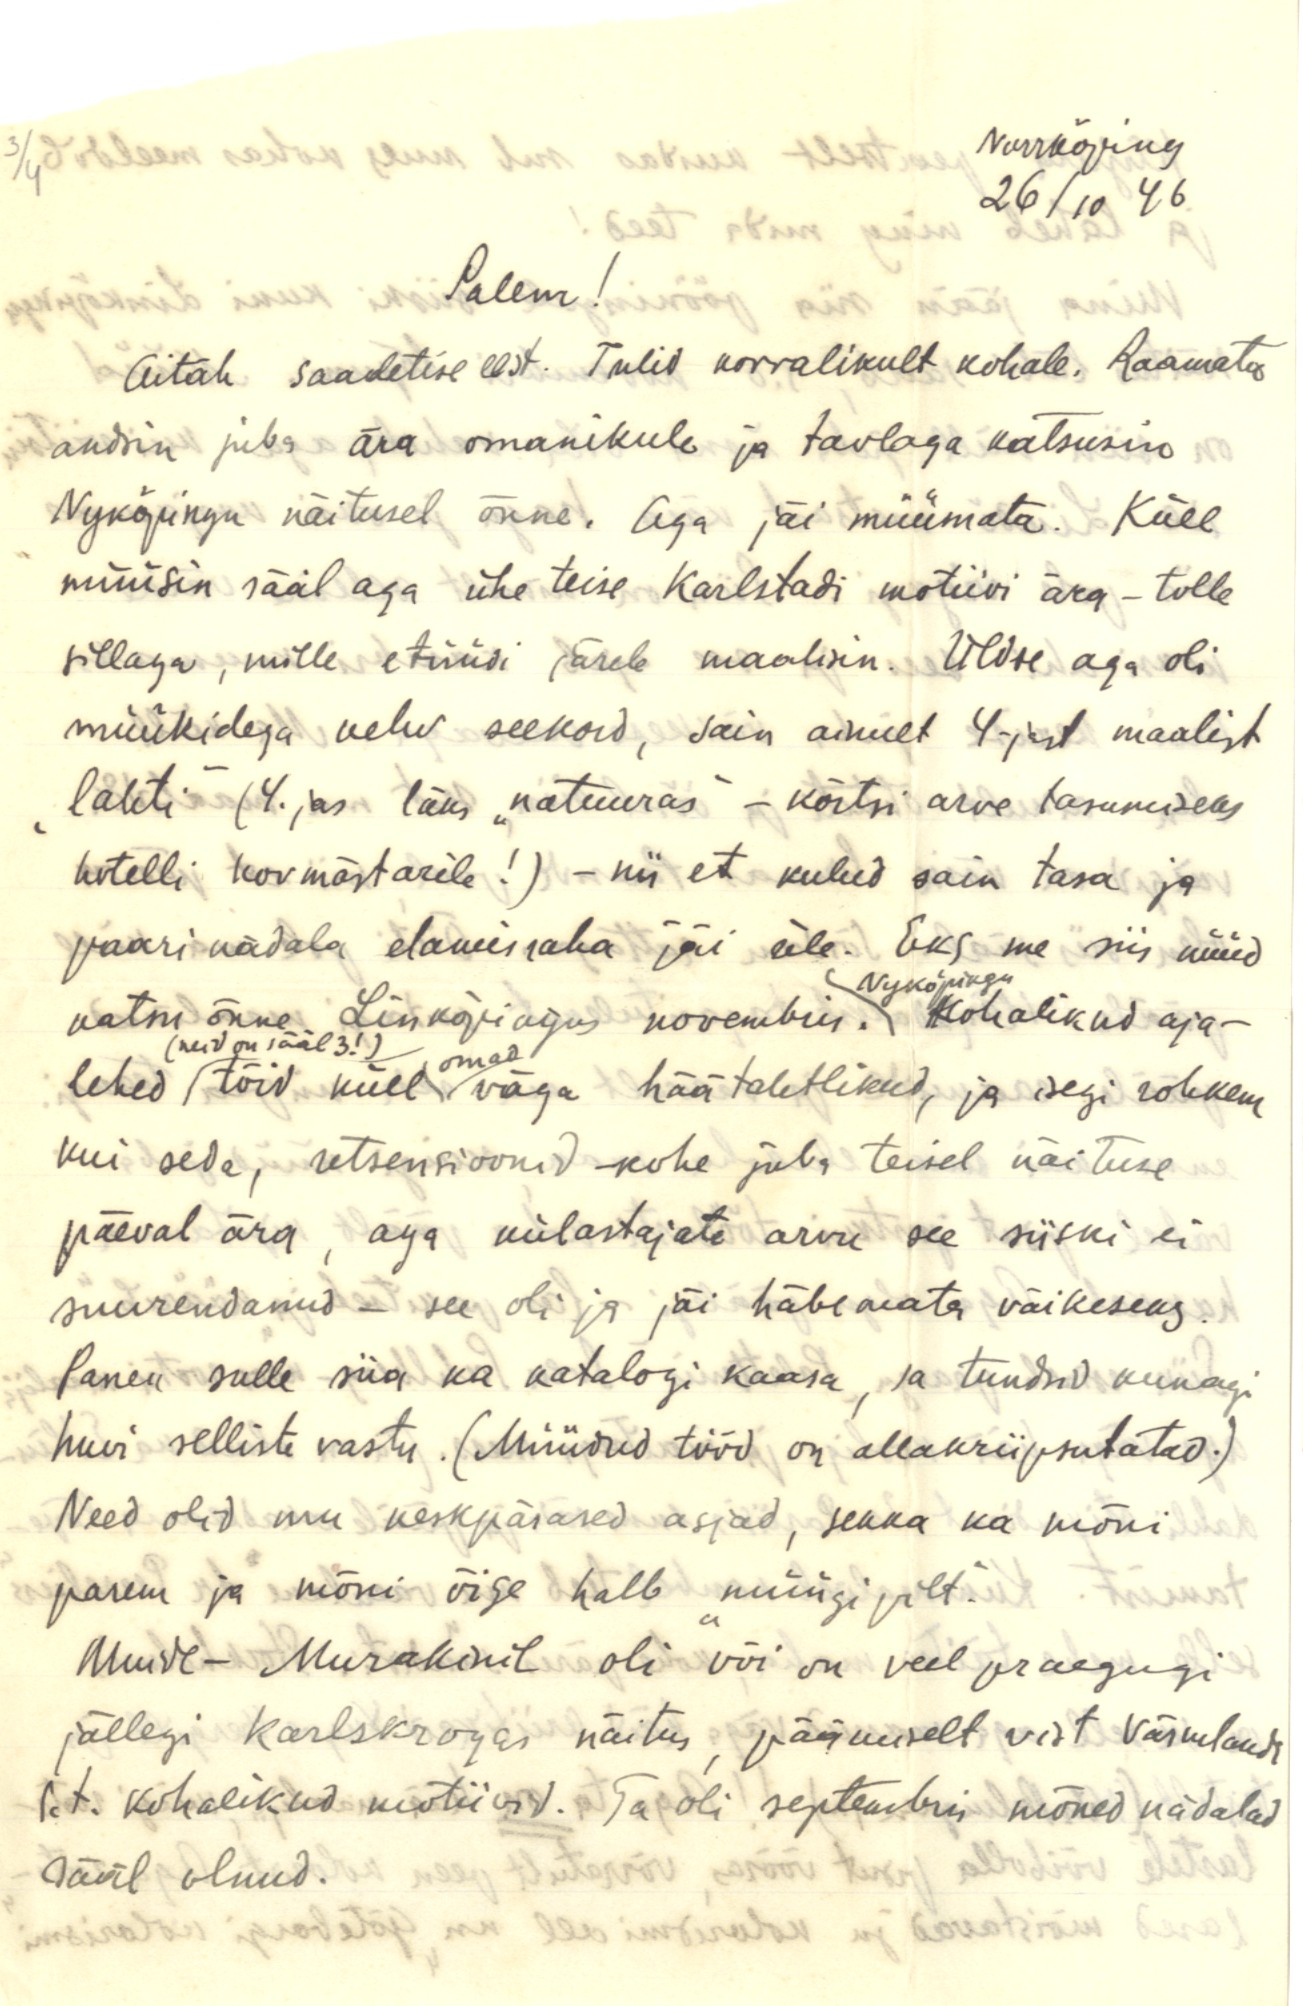 3/4
Norrköping
26/10 46
Salem!
Aitäh saadetise eest. Tulid korralikult kohale. Raamatu
andsin juba ära omanikule ja tavlaga katsusin
Nyköpingu näitusel õnne. Aga jäi müümata. Küll
müüsin sääl aga ühe teise Karlstadi motiivi ära – tolle
sillaga, mille etüüdi järele maalisin. Üldse aga oli
müükidega kehv seekord, sain ainult 4-jast maalist
"lahti" (4. jas läks "natuuras" – kõrtsi arve tasumiseks
hotelli hovmästarile!) – nii et kulud sain tasa ja
paari nädala elamisraha jäi üle. Eks me siis nüüd
katsu õnne Linköpingus novembris. Nyköpingu Kohalikud aja-
lehed (neid on sääl 3!) tõid küll omad väga häätahtlikud, ja isegi rohkem
kui seda, retsensioonid kohe juba teisel näituse
päeval ära, aga külastajate arvu see siiski ei
suurendanud – see oli ja jäi häbemata väikeseks.
Panen sulle siia ka katalogi kaasa, sa tundsid kunagi
huvi selliste vastu. (Müüdud tööd on allakriipsutatad.)
Need olid mu keskpärased asjad, sekka ka mõni
parem ja mõni õige halb "müügipilt".
Muide – Murakinil oli või on veel praegugi
jällegi Karlskrogas näitus, pääasiliselt vist Värmlandi
s.t. kohalikud motiivid. Ta oli septembris mõned nädalad
sääl olnud.